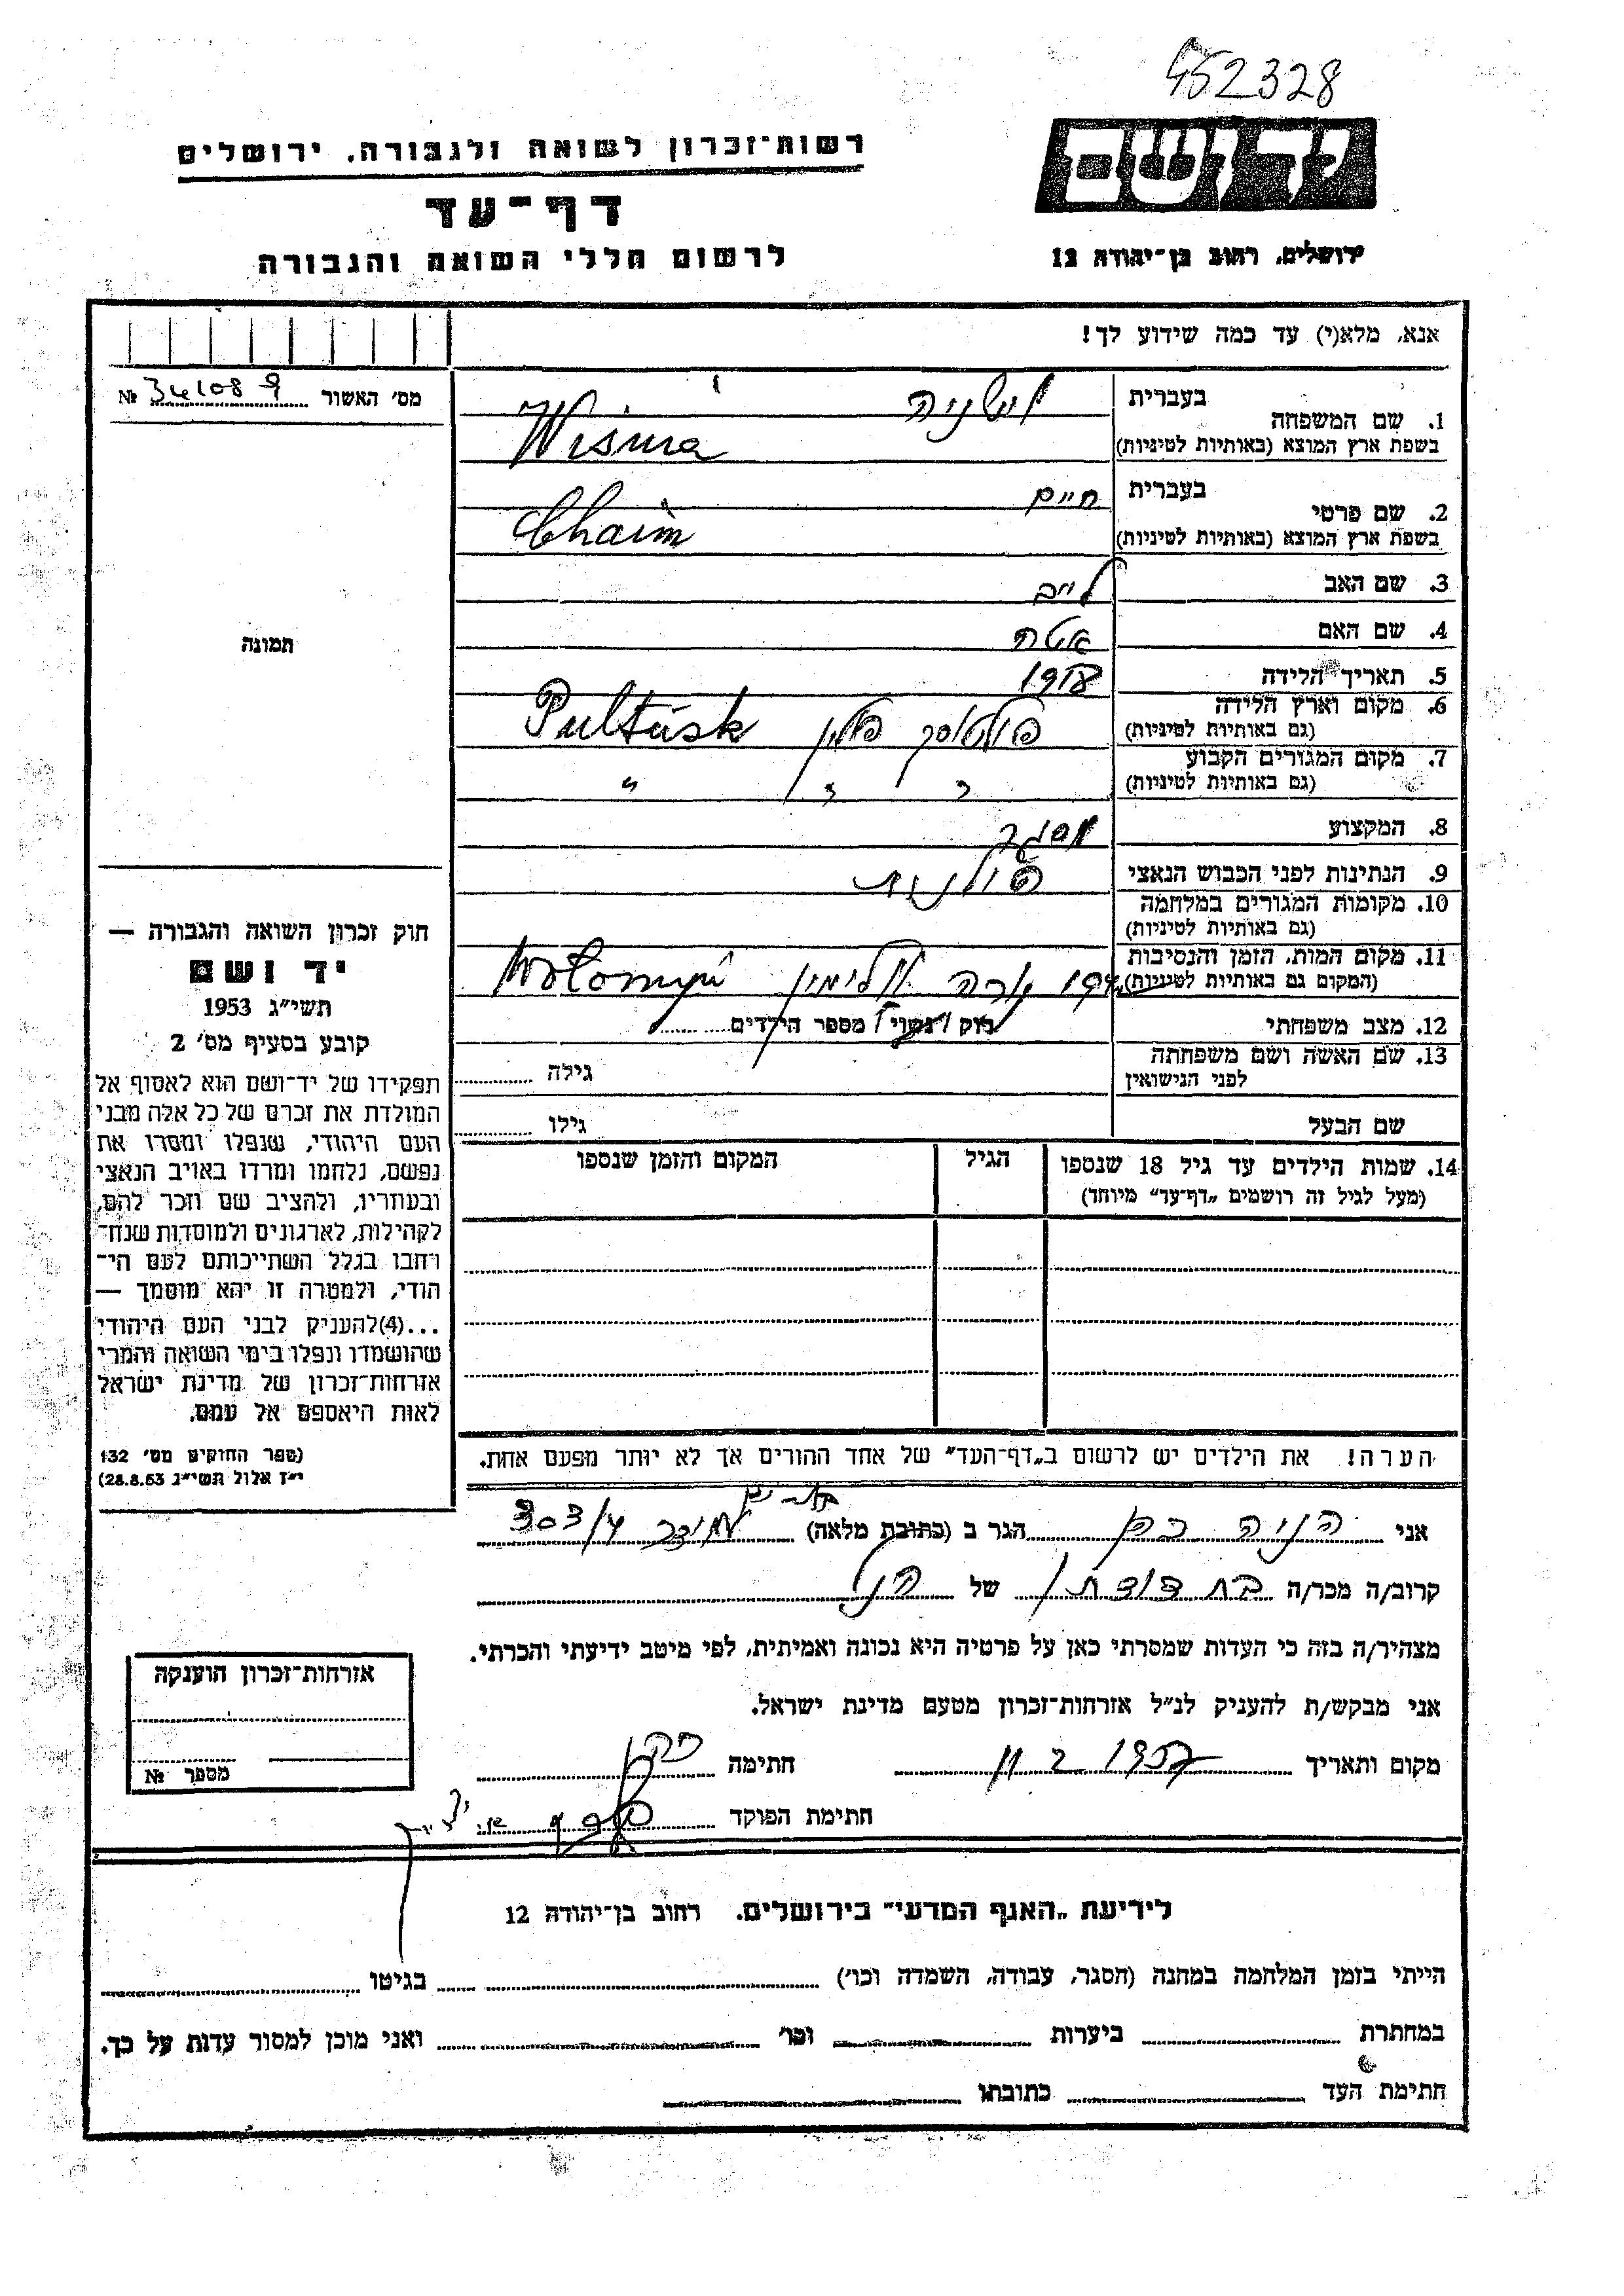 452328
יד ושם
רשות־זכרון לשואה ולגבורה, ירושלים
דף־עד
לרשום חללי השואה והגבורה
ירושלים, רחוב בן־יהודה 12
אנא, מלא(י) עד כמה שידוע לך!
מס' האשור № 341089
תמונה
1. שם המשפחה
בעברית וישניה
בשפת ארץ המוצא (באותיות לטיניות) Wisnia
2. שם פרטי
בעברית חיים
בשפת ארץ המוצא (באותיות לטיניות) Chaim
3. שם האב לייב
4. שם האם אטה
5. תאריך הלידה 1918
6. מקום וארץ הלידה
(גם באותיות לטיניות) פולטוסק פולין Pultusk
7. מקום המגורים הקבוע
(גם באותיות לטיניות) " " "
8. המקצוע
9. הנתינות לפני הכבוש הנאצי פולנית
10. מקומות המגורים במלחמה
(גם באותיות לטיניות)
11. מקום המות, הזמן והנסיבות
(המקום גם באותיות לטיניות) וולומין
12. מצב משפחתי רוק / נשוי / מספר הילדים
13. שם האשה ושם משפחתה
לפני הנישואין
גילה
שם הבעל
גילו
14. שמות הילדים עד גיל 18 שנספו
(מעל לגיל זה רושמים „דף־עד" מיוחד)
הגיל
המקום והזמן שנספו
הערה! את הילדים יש לרשום ב„דף־העד" של אחד ההורים אך לא יותר מפעם אחת.
חוק זכרון השואה והגבורה —
יד ושם
תשי״ג 1953
קובע בסעיף מס' 2
תפקידו של יד־ושם הוא לאסוף אל
המולדת את זכרם של כל אלה מבני
העם היהודי, שנפלו ומסרו את
נפשם, נלחמו ומרדו באויב הנאצי
ובעוזריו, ולהציב שם וזכר להם,
לקהילות, לארגונים ולמוסדות שנח־
רחבו בגלל השתייכותם לעם הי־
הודי, ולמטרה זו יהא מוסמך —
...(4)להעניק לבני העם היהודי
שהושמדו ונפלו בימי השואה והמרי
אזרחות־זכרון של מדינת ישראל
לאות היאספם אל עמם.
(ספר החוקים מס' 132
י״ז אלול תשי״ג 28.8.53)
אני הניה הגר ב (כתובת מלאה) 303/4
קרוב/ה מכר/ה בת דודת של
מצהיר/ה בזה כי העדות שמסרתי כאן על פרטיה היא נכונה ואמיתית, לפי מיטב ידיעתי והכרתי.
אני מבקש/ת להעניק לנ״ל אזרחות־זכרון מטעם מדינת ישראל.
מקום ותאריך 1957 חתימה
חתימת הפוקד
אזרחות־זכרון הוענקה
מספר №
לידיעת „האגף המדעי" בירושלים. רחוב בן־יהודה 12
הייתי בזמן המלחמה במחנה (הסגר, עבודה, השמדה וכו') בגיטו
במחתרת ביערות וכו' ואני מוכן למסור עדות על כך.
חתימת העד כתובתו